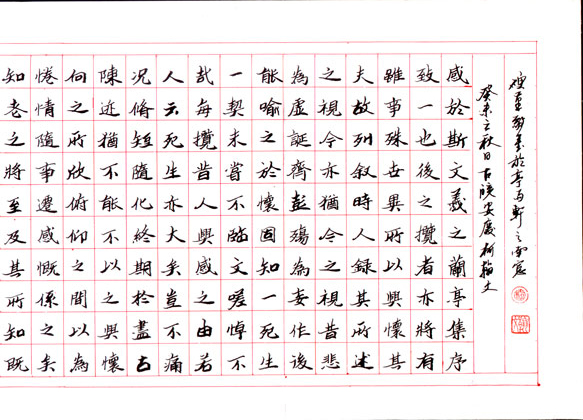 知老之將至及其所知既
惓情隨事遷感慨係之矣
向之所欣俯仰之間以為
陳迹猶不能不以之興懷
況脩短隨化終期於盡古
人云死生亦大矣豈不痛
哉每攬昔人興感之由若
一契未嘗不臨文嗟悼不
能喻之於懷固知一死生
為虛誕齊彭殤為妄作後
之視今亦猶今之視昔悲
夫故列叙時人錄其所述
雖事殊世異所以興懷其
致一也後之攬者亦將有
感於斯文義之蘭亭集序
癸未之秋日古皖安慶柯文
於亭雨軒之南窗